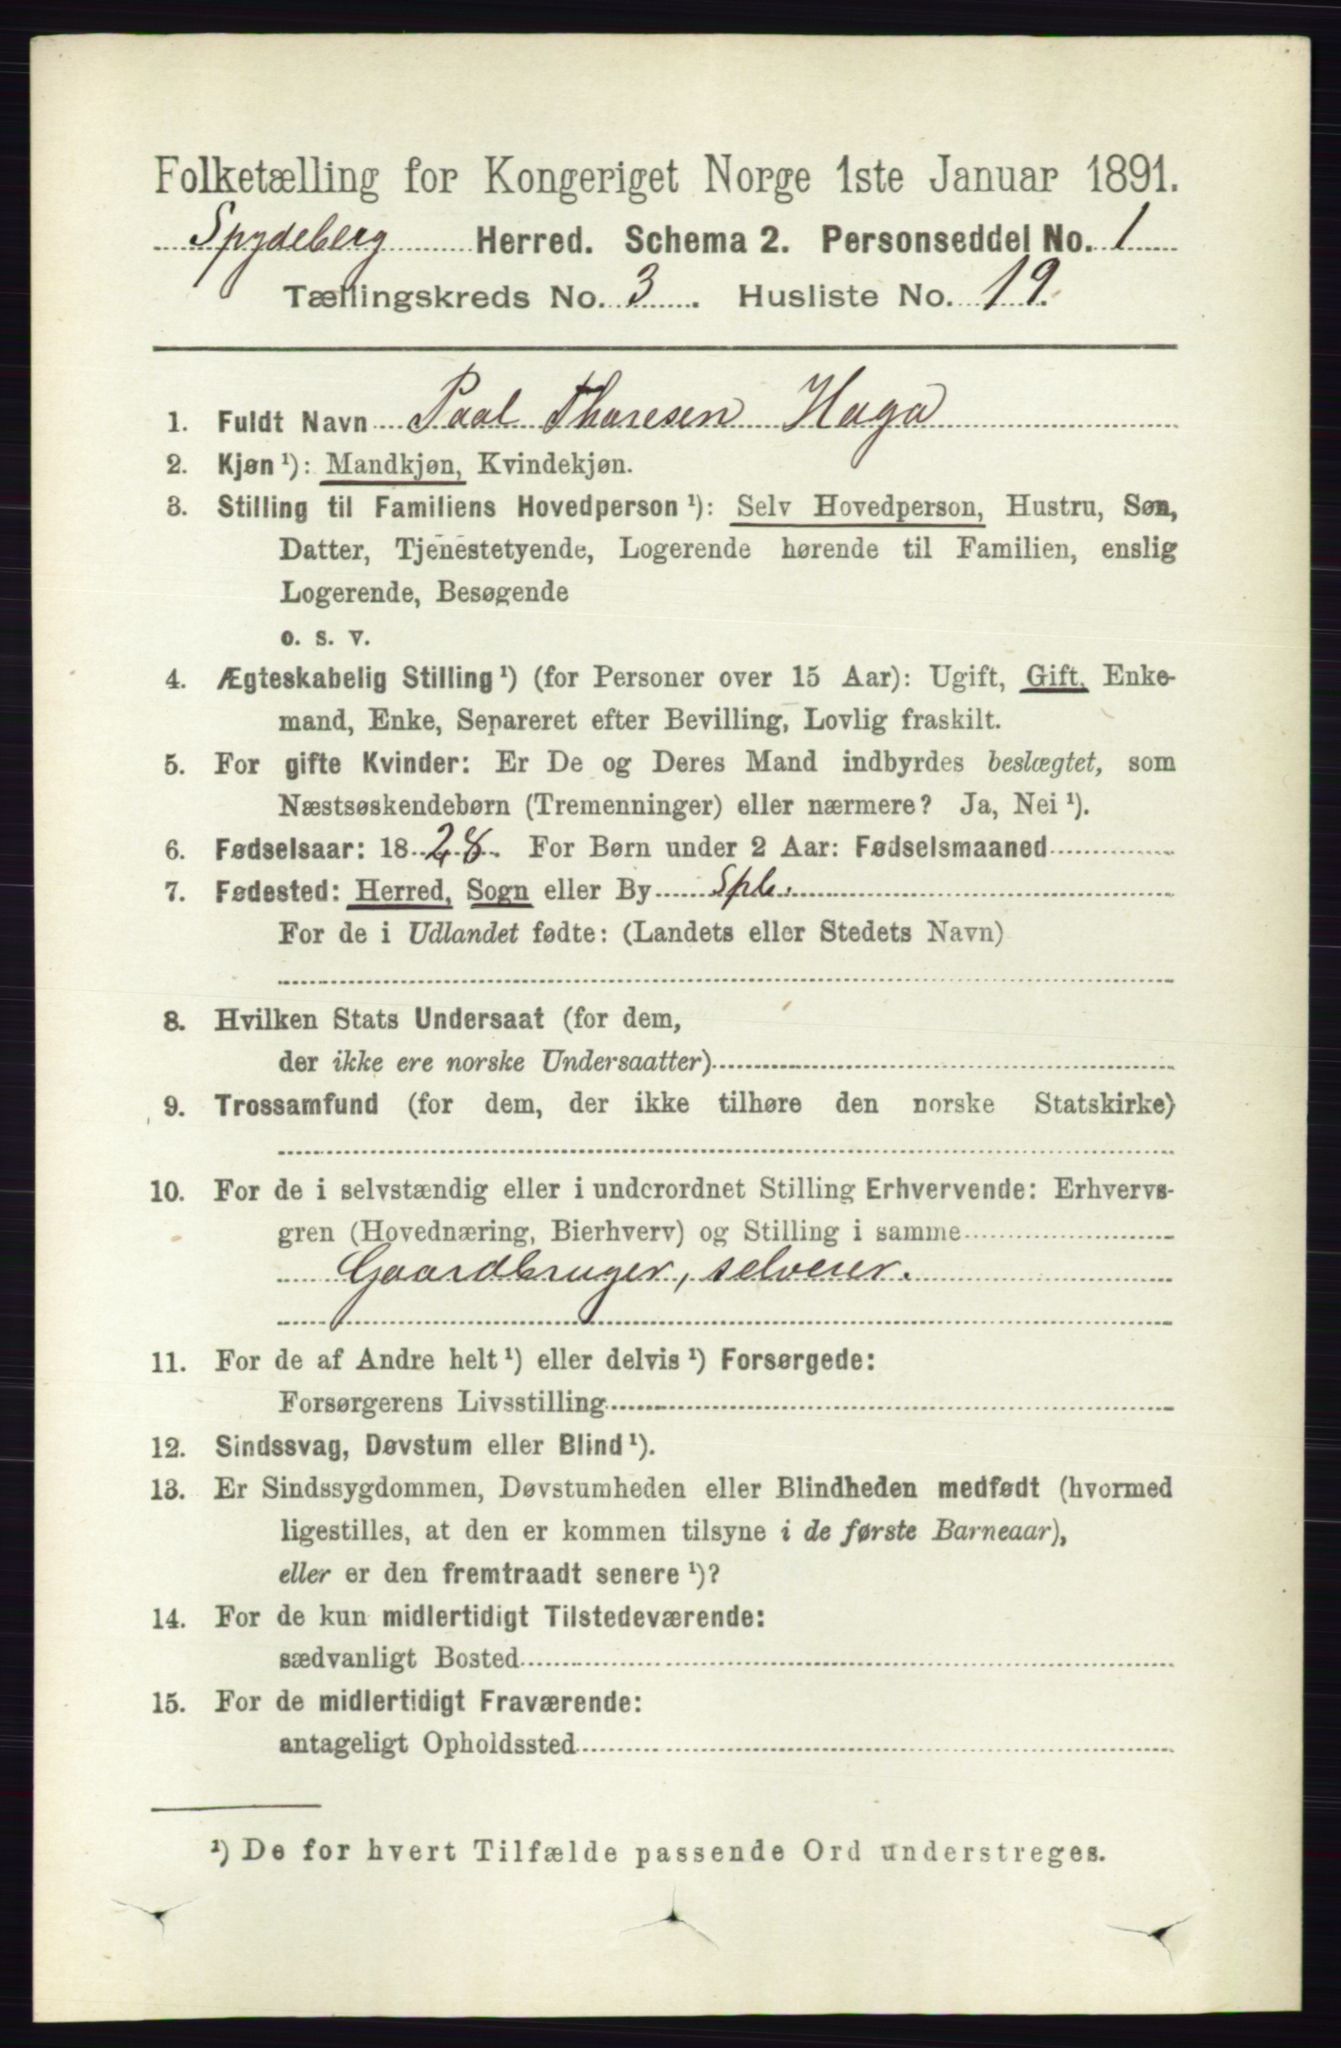 Folketælling for Kongeriget Norge 1ste Januar 1891.
Spydeberg Herred. Schema 2. Personseddel No. 1
Tællingskreds No. 3. Husliste No. 19.
1. Fuldt Navn Paal Thoresen Haga
2. Kjøn ¹): Mandkjøn, Kvindekjøn.
3. Stilling til Familiens Hovedperson ¹): Selv Hovedperson, Hustru, Søn,
Datter, Tjenestetyende, Logerende hørende til Familien, enslig
Logerende, Besøgende
o. s. v.
4. Ægteskabelig Stilling ¹) (for Personer over 15 Aar): Ugift, Gift, Enke-
mand, Enke, Separeret efter Bevilling, Lovlig fraskilt.
5. For gifte Kvinder: Er De og Deres Mand indbyrdes beslægtet, som
Næstsøskendebørn (Tremenninger) eller nærmere? Ja, Nei ¹).
6. Fødselsaar: 1828. For Børn under 2 Aar: Fødselsmaaned
7. Fødested: Herred, Sogn eller By Spb.
For de i Udlandet fødte: (Landets eller Stedets Navn)
8. Hvilken Stats Undersaat (for dem,
der ikke ere norske Undersaatter)
9. Trossamfund (for dem, der ikke tilhøre den norske Statskirke)
10. For de i selvstændig eller i underordnet Stilling Erhvervende: Erhvervs-
gren (Hovednæring, Bierhverv) og Stilling i samme
Gaardbruger, selveier.
11. For de af Andre helt ¹) eller delvis ¹) Forsørgede:
Forsørgerens Livsstilling
12. Sindssvag, Døvstum eller Blind ¹).
13. Er Sindssygdommen, Døvstumheden eller Blindheden medfødt (hvormed
ligestilles, at den er kommen tilsyne i de første Barneaar),
eller er den fremtraadt senere ¹)?
14. For de kun midlertidigt Tilstedeværende:
sædvanligt Bosted
15. For de midlertidigt Fraværende:
antageligt Opholdssted
¹) De for hvert Tilfælde passende Ord understreges.